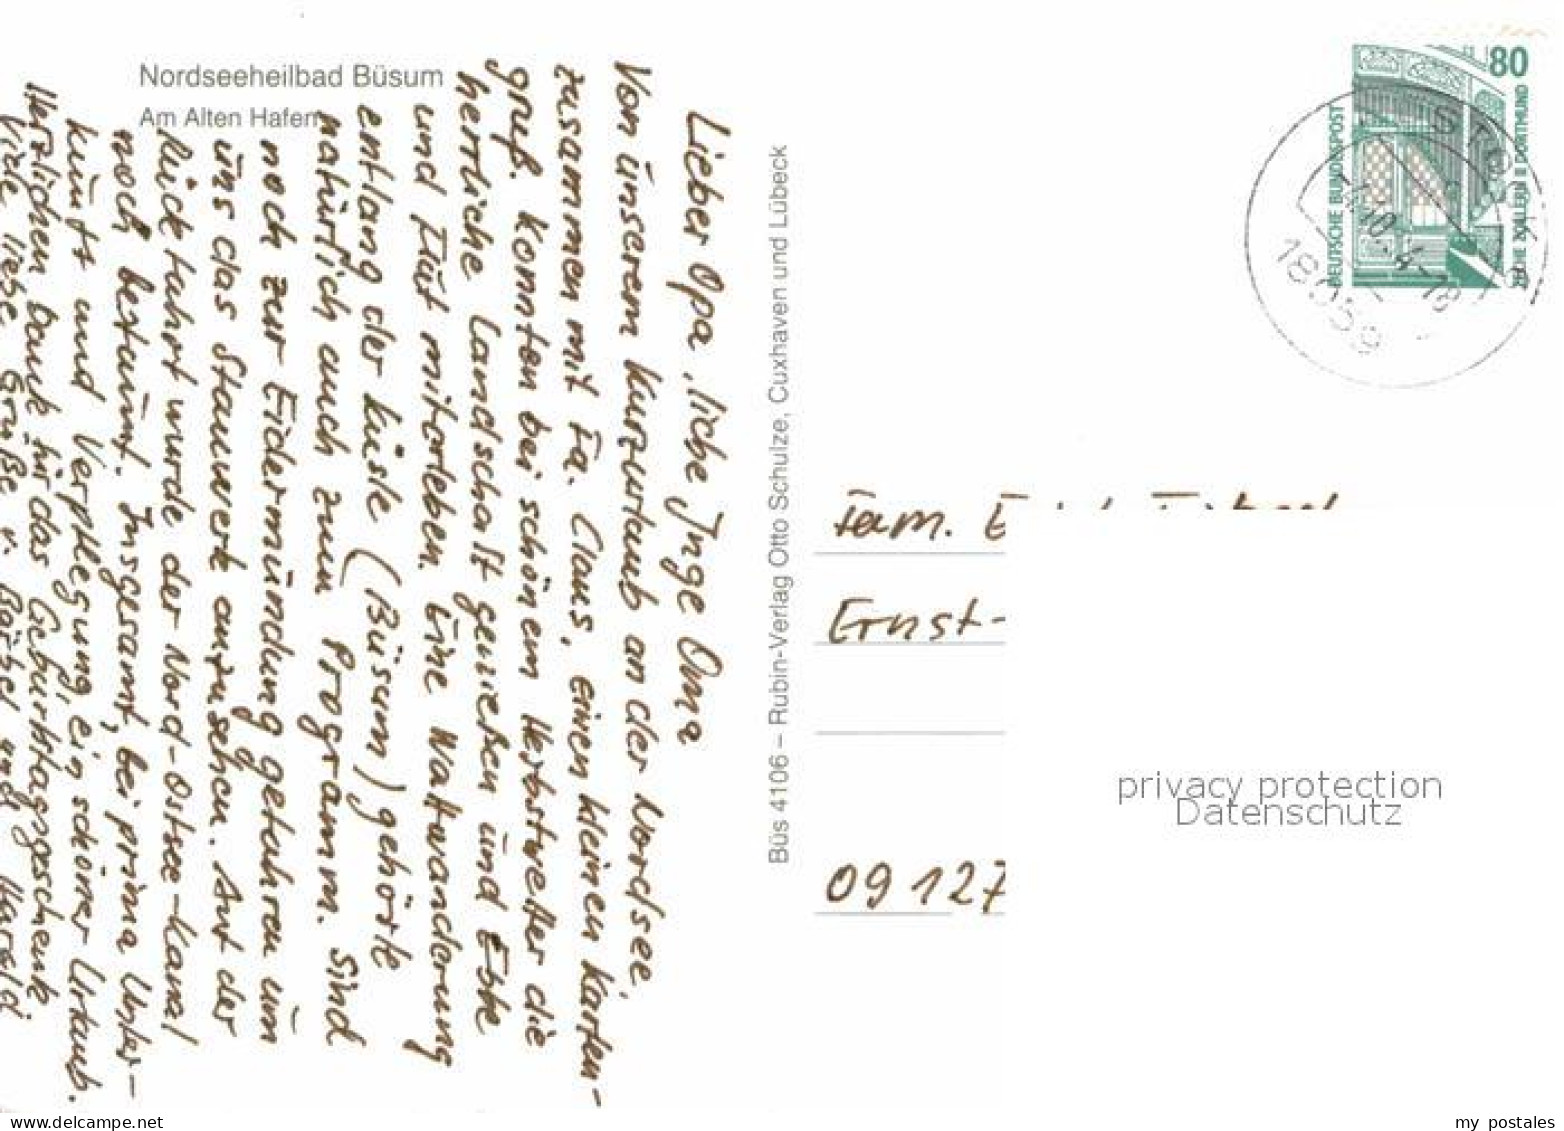 Nordseeheilbad Büsum
Am Alten Hafen
Lieber Opa, liebe Inge Oma
Von unserem Kurzurlaub an der Nordsee,
zusammen mit Fa. Claus, einen kleinen Karten-
gruß. Konnten bei schönem Herbstwetter die
herrliche Landschaft genießen und Ebbe
und Flut miterleben. Eine Wattwanderung
entlang der Küste (Büsum) gehörte
natürlich auch zum Programm. Sind
noch zur Eidermündung gefahren um
uns das Stauwerk anzusehen. Auf der
Rückfahrt wurde der Nord-Ostsee-Kanal
noch bestaunt. Insgesamt, bei prima Unter-
kunft und Verpflegung, ein schöner Urlaub.
Herzlichen Dank für das Geburtstagsgeschenk
Viele liebe Grüße v. Bärbel und Harald.
Büs 4106 – Rubin-Verlag Otto Schulze, Cuxhaven und Lübeck
80
DEUTSCHE BUNDESPOST
ZECHE ZOLLERN II DORTMUND
18059
Fam.
Ernst-
09127
privacy protection
Datenschutz
my postales